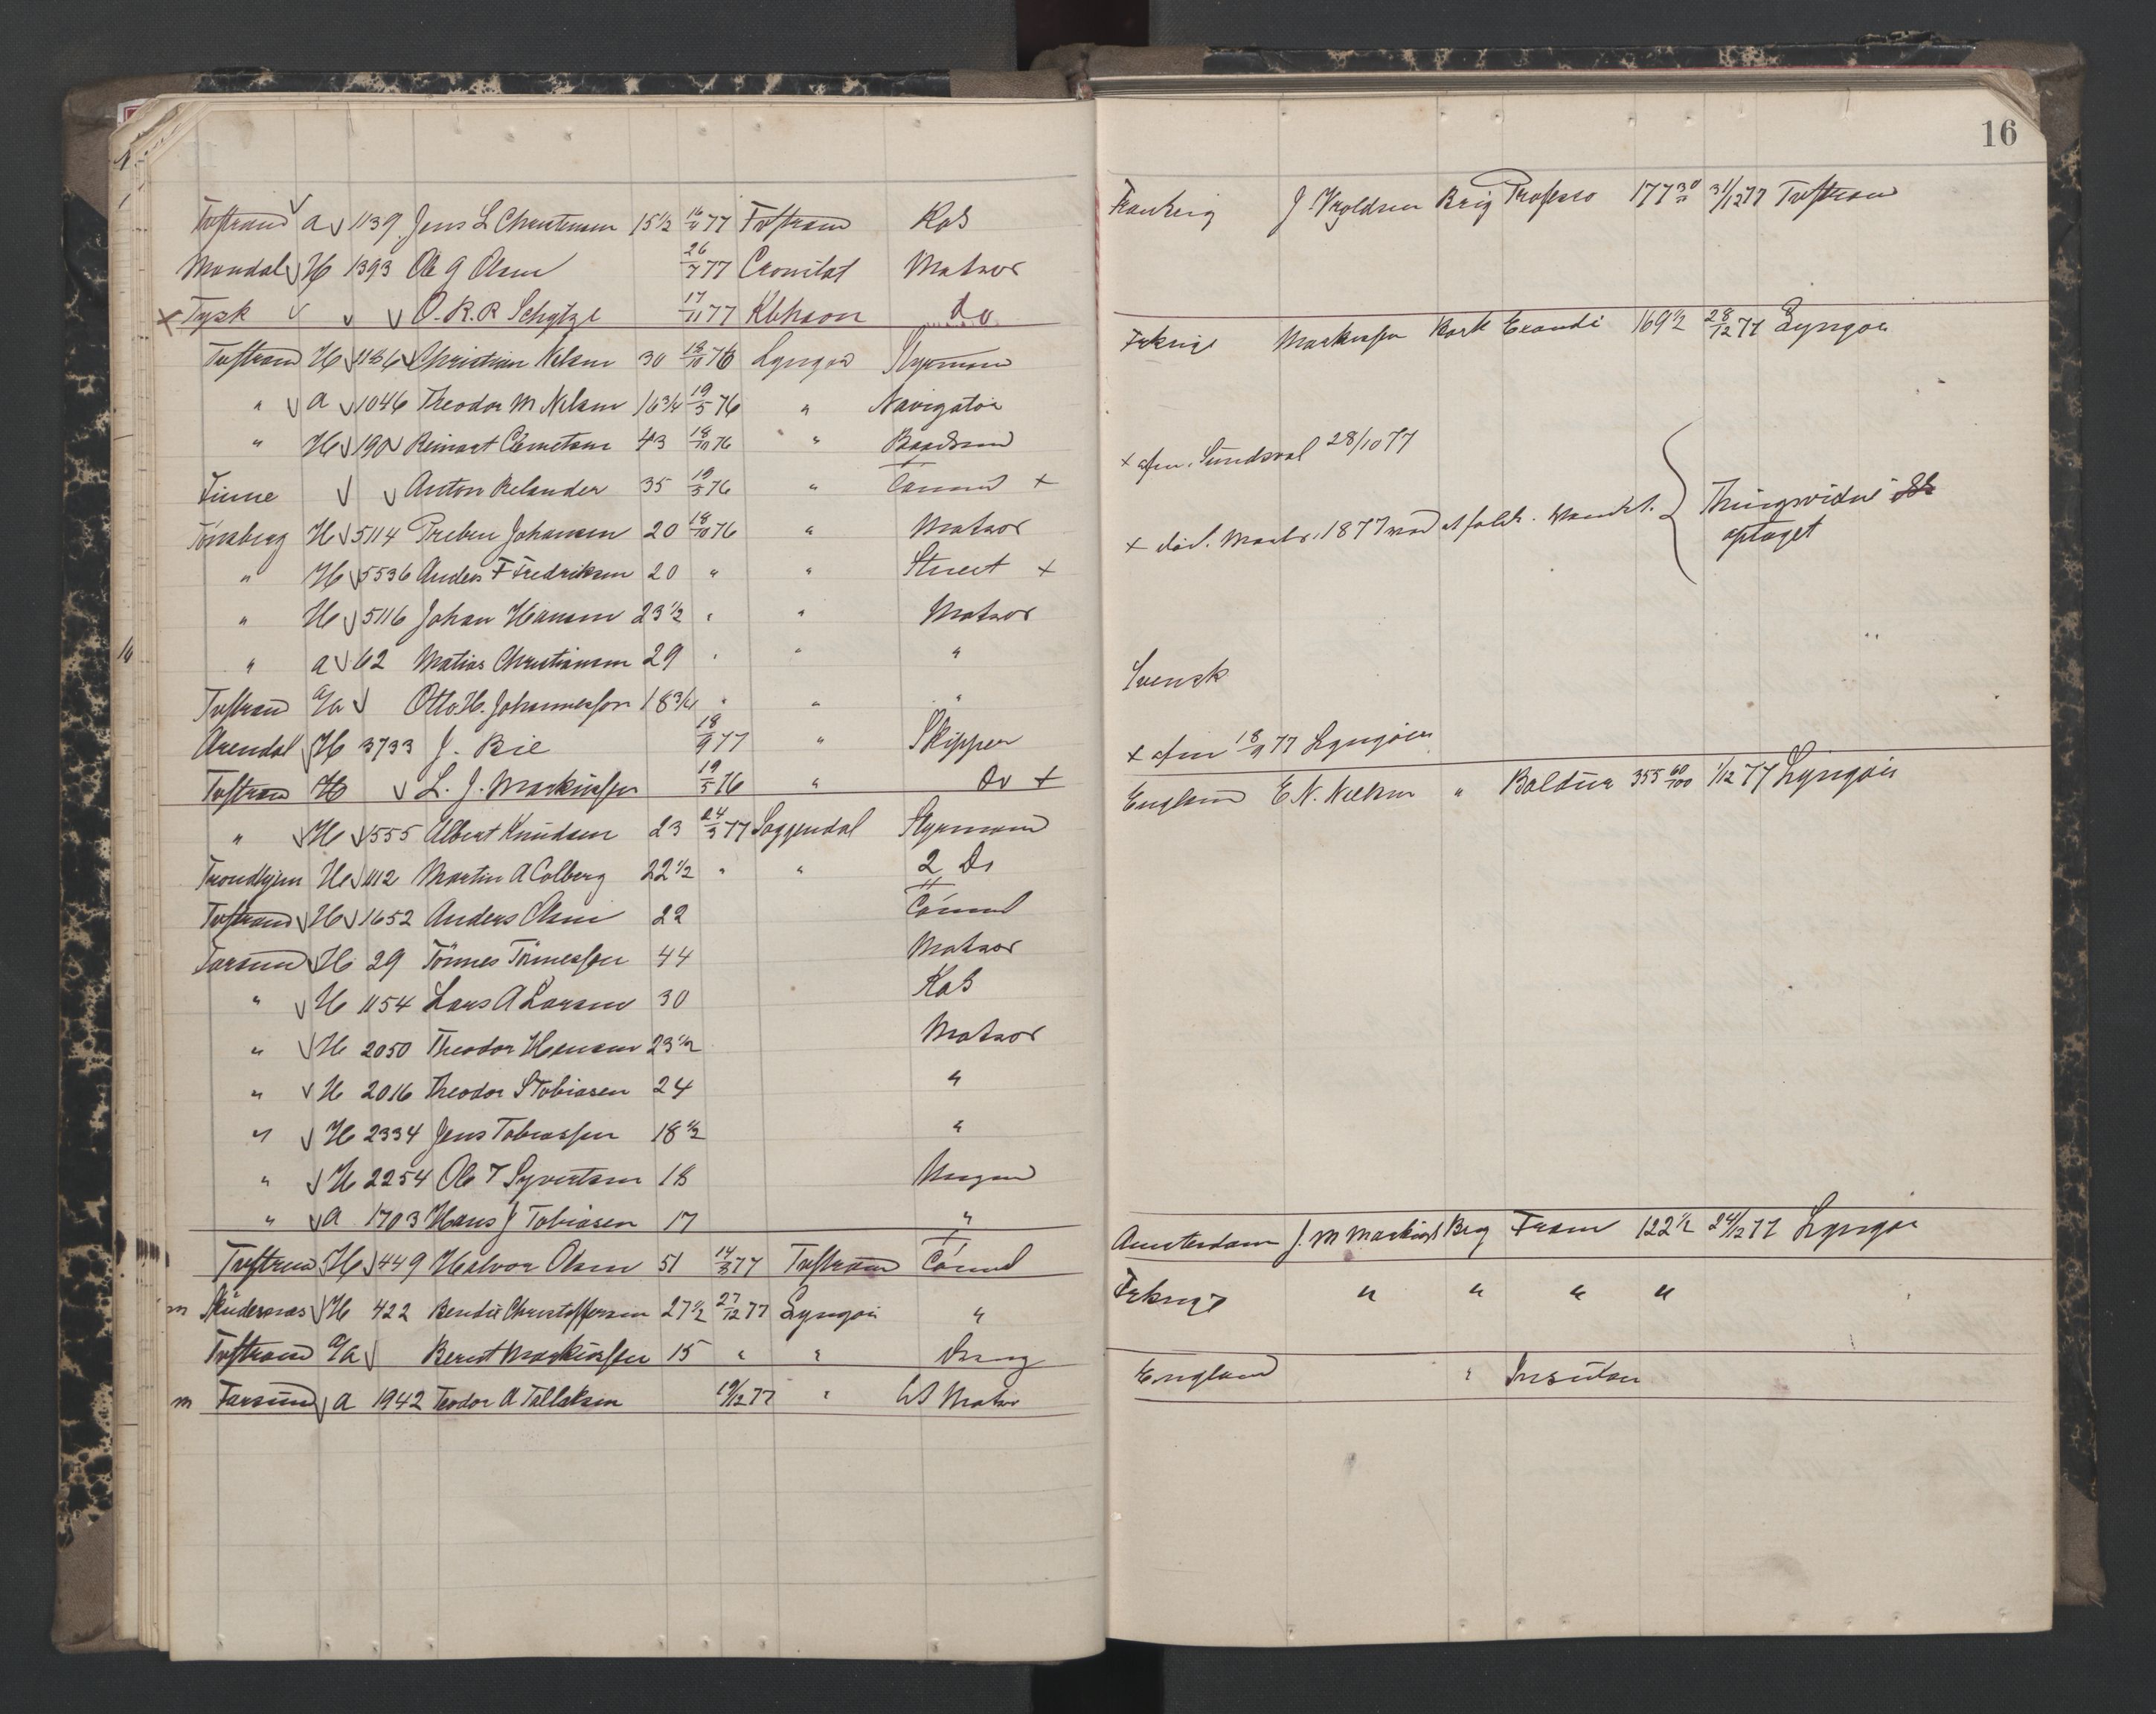 16
Tvstrand a 1139 Jens L Christensen 15½ 16/11 77 Tvstrand Kok
Mandal H 1393 Ole G Olsen 26/7 77 Cronstat Matros
x Tysk O. R. R Schytze 17/11 77 Kbhavn Do
Tvstrand H 1186 Christian Nilsen 30 18/10 76 Lyngør Styrmand
" a 1046 Theodor M Nilsen 16¾ 19/5 76 " Navigatør
" H 190 Reinart Clemetsen 43 18/10 76 " Baadsmd
Finne Anton Relander 35 19/5 76 " Tømmd +
Tönsberg H 5114 Preben Johansen 20 18/10 76 " Matros
" H 5536 Anders F Fredriksen 20 " " Stuert +
" H 5116 Johan Hansen 23½ " " Matros
" a 62 Matias Christiansen 29 " " "
Tvstrand a/a Otto H. Johannessen 18¾ " " "
Arendal H 3733 J. Bie 18/9 77 " Skipper
Tvstrand H L. J. Markussen 19/5 76 " Do +
" H 1555 Albert Knudsen 23 24/3 77 Soggendal Styrmand
Trondhjem H 1112 Martin A Colberg 22½ " " 2 Do
Tvstrand H 1652 Anders Olsen 22 Tömmd
Farsund H 29 Tönnes Tönnessen 44 Matros
" H 1154 Lars A Larsen 30 Kok
" H 2050 Theodor Hansen 23½ Matros
" H 2016 Theodor S Tobiasen 24 "
" H 2334 Jens Tobiassen 18½ "
" H 2254 Ole T Syvertsen 18 Ungmd
" a 1703 Hans J Tobiasen 17 "
Tvstrand H 449 Halvor Olsen 51 14/8 77 Tvstrand Tömmd
m Skudesnæs H 422 Bendix Christoffersen 27½ 27/12 77 Lyngør "
Tvstrand a/a Bernt Markussen 15 " " Dreng
m Farsund a 1942 Teodor A Tallaksen 19/12 77 " Matros
Frankrig J Vroldsen Brig Professo 177 30 31/12 77 Tvstrand
Frkrige Markussen Bark 169½ 28/12 77 Lyngør
+ afm. Sundsval 28/10 77
+ död. 1877 Thingsvidne optaget
Svensk
+ afm 18/9 77 Lyngøer
England E N. Nielsen " Baldur 355 60/100 1/12 77 Lyngør
Amsterdam J. M Markuss Brg Fram 122½ 24/12 77 Lyngør
Frkrige " " " "
England "